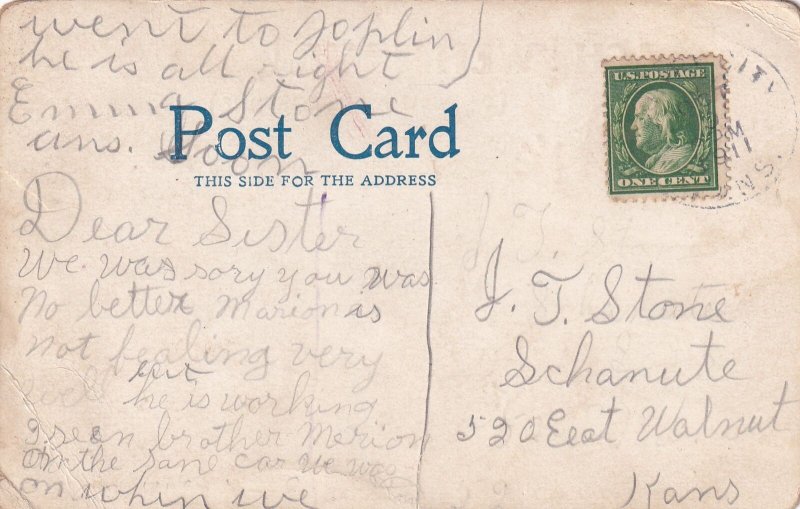 went to Joplin
he is all right
Emma Stone
ans. Soon
Post Card
THIS SIDE FOR THE ADDRESS
U.S. POSTAGE
ONE CENT
AM
1911
KANS.
Dear Sister
We was sory you was
No better Marion is
not fealing very
well but
he is working
I seen brother Merion
on the sane car we was
on whin we
J. T. Stone
Schanute
520 Eeat Walnut
Kans